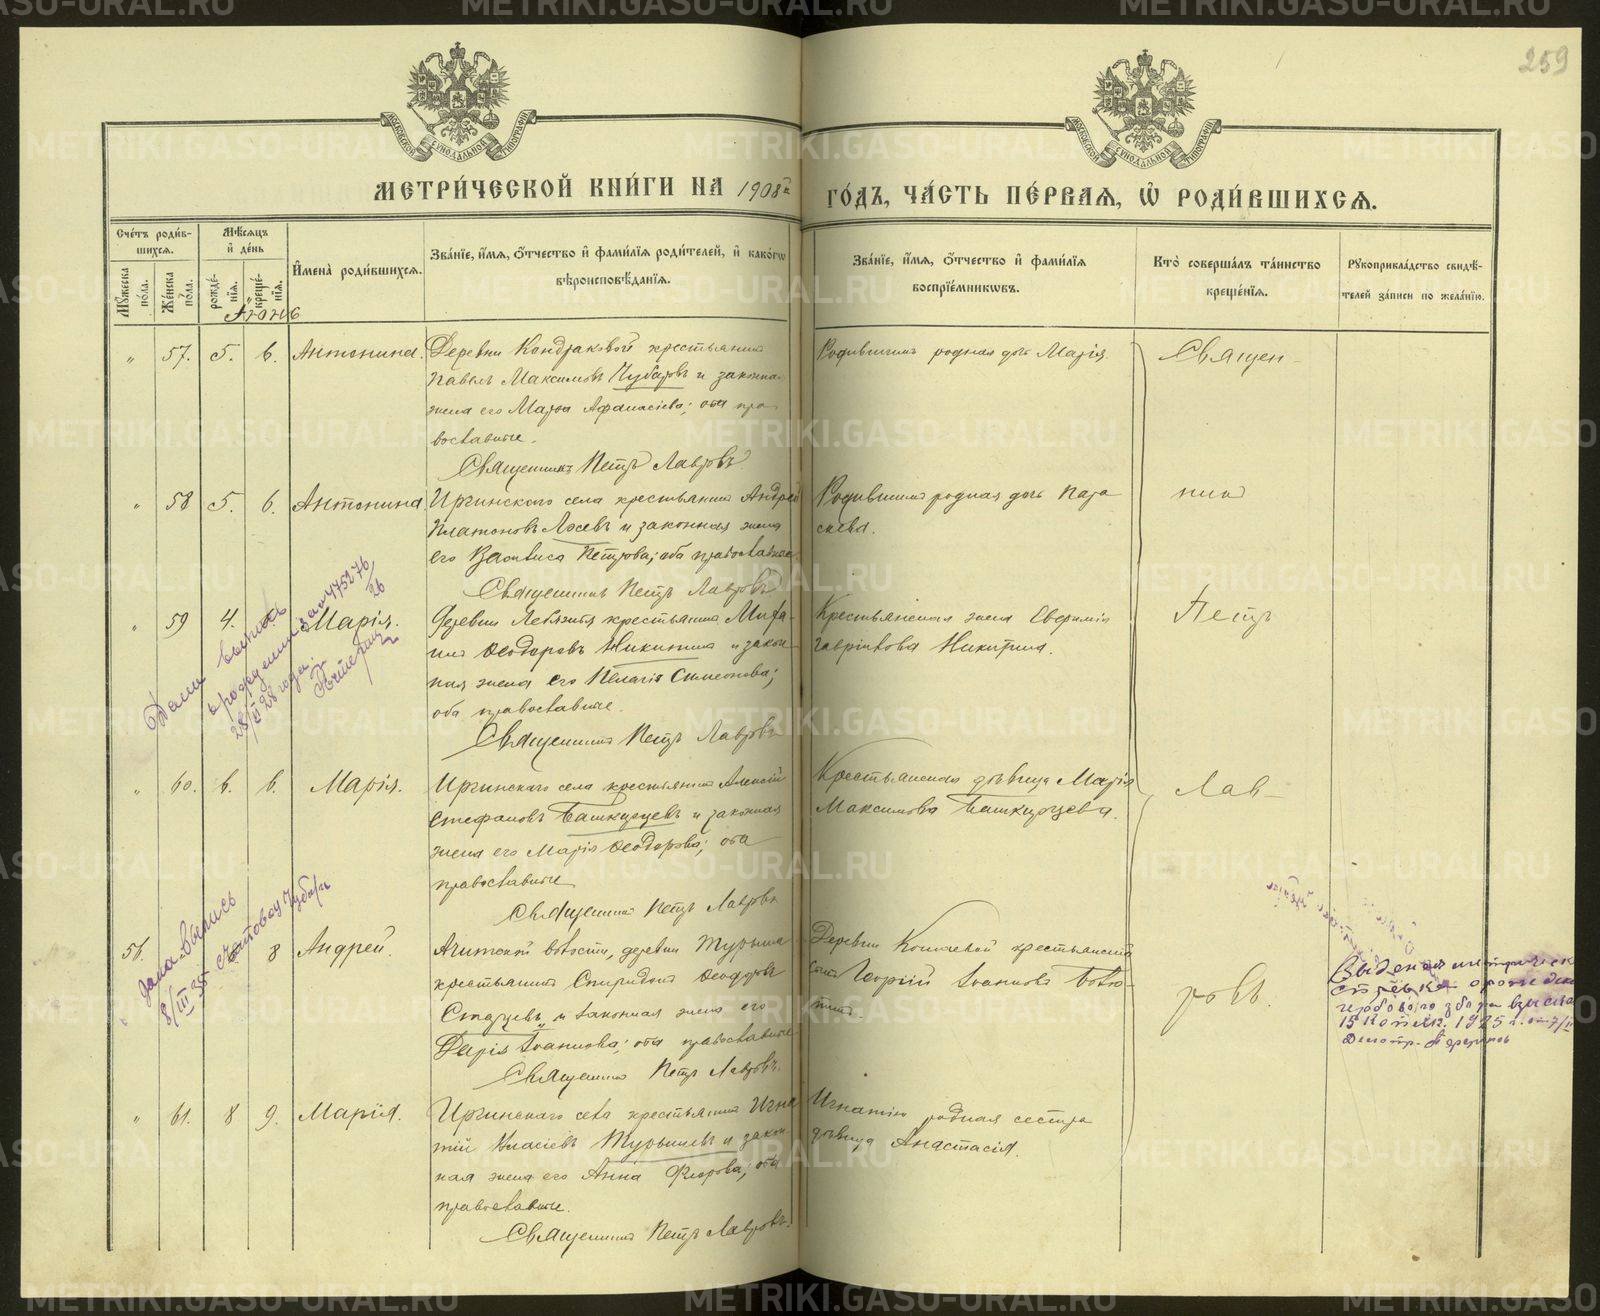 259
МОСКОВСКОЙ СѴНОДАЛЬНОЙ ТИПОГРАФІИ
МОСКОВСКОЙ СѴНОДАЛЬНОЙ ТИПОГРАФІИ
МЕТРИ́ЧЕСКОЙ КНИ́ГИ НА 1908й ГО́ДЪ, ЧА́СТЬ ПЕ́РВАЯ, Ѡ РОДИ́ВШИХСЯ.
Сче́тъ роди́в-
шихся.
Му́жеска по́ла.
Же́нска по́ла.
Мѣ́сяцъ
и҆ де́нь
рожде́нїя.
креще́нїя.
И҆мена̀ роди́вшихся.
Зва́нїе, и҆́мя, о҆́тчество и҆ фами́лїя роди́телей, и҆ како́гѡ
вѣроисповѣ́данїя.
Зва́нїе, и҆́мя, о҆́тчество и҆ фами́лїя
воспрїе́мникѡвъ.
Кто̀ соверша́лъ та́инство
креще́нїя.
Рꙋкоприкла́дство свидѣ́-
телей за́писи по жела́нїю.
Іюнь
„ 57. 5. 6. Антонина. Деревни Кондраковой крестьянинъ
Павелъ Максимовъ Чубаровъ и законная
жена его Марѳа Афанасіева; оба пра
вославные.
Священникъ Петръ Лавровъ.
Родившимъ родная дочь Марія.
Священ-
„ 58 5. 6. Антонина. Иргинскаго села крестьянинъ Андрей
Платоновъ Лосевъ и законная жена
его Васлиса Петрова; оба православные
Священникъ Петръ Лавровъ
Родившимъ родная дочь Пара
скева.
никъ
„ 59 4. Марія. Деревни Левязита крестьянинъ Митра-
нъ Ѳеодоровъ Никитинъ и закон-
ная жена его Пелагія Симеонова;
оба православные.
Священникъ Петръ Лавровъ
Крестьянская жена Евфимія
Гавріилова Никитина.
Петръ
Дана выпись
о рожденіи за № 475276/26
28/II 28 года.
„ 60. 6. 6. Марія. Иргинскаго села крестьянинъ Алексій
Стефановъ Башкурцевъ и законная
жена его Марія Ѳеодорова; оба
православные
Священникъ Петръ Лавровъ
Крестьянская дѣвица Марія
Максимова Башкурцева.
Лав-
Дана выпись
8/III 35
56. 8 Андрей. Ачитской волости, деревни Турыша
крестьянинъ Спиридонъ Ѳеодоровъ
Стахѣевъ и законная жена его
Дарія Іоаннова; оба православные
Священникъ Петръ Лавровъ.
Деревни Кошаевой крестьянскій
сынъ Георгій Іоанновъ
ровъ.
15 копѣек. 1925 г.
„ 61. 8 9. Марія. Иргинскаго села крестьянинъ Игна
тій Власіевъ Турышевъ и закон-
ная жена его Анна Флорова; оба
православные.
Священникъ Петръ Лавровъ.
Игнатію родная сестра
дѣвица Анастасія.
METRIKI.GASO-URAL.RU